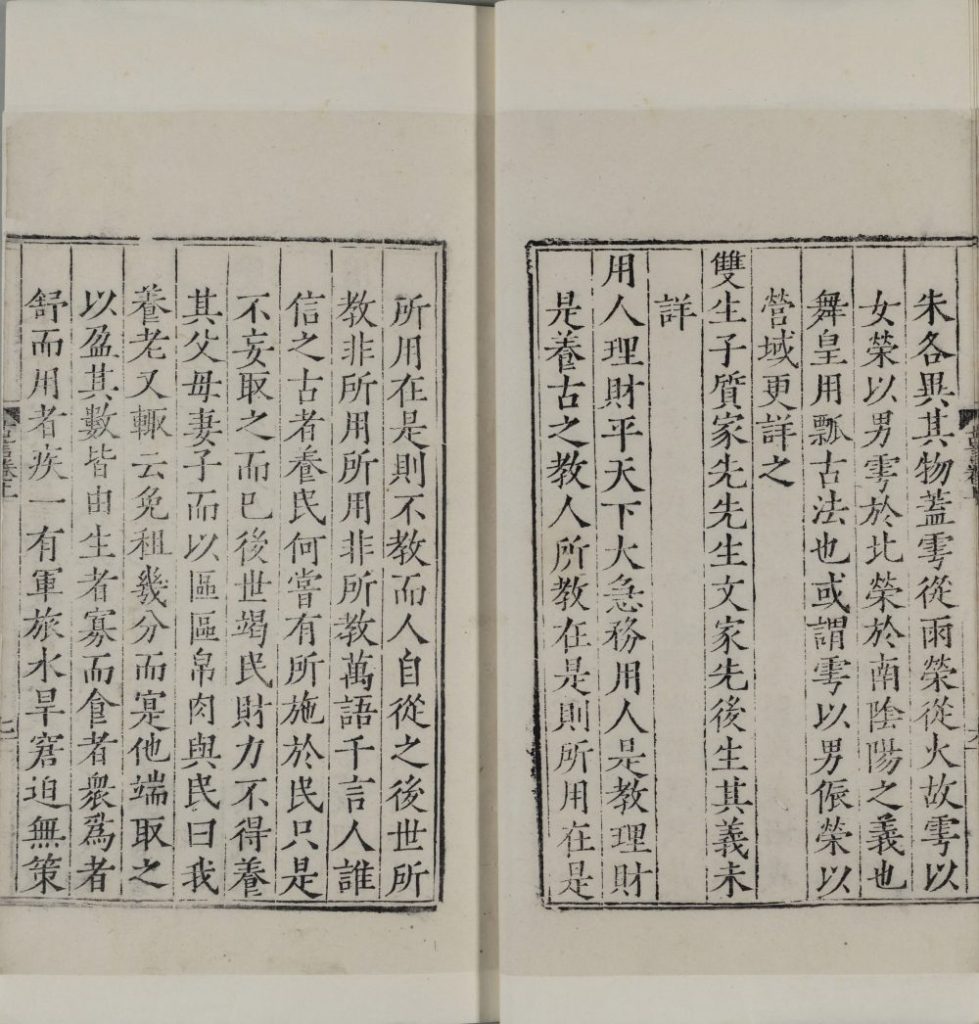 朱各異其物蓋雩從雨榮從火故雩以
女榮以男雩於北榮於南陰陽之義也
舞皇用瓢古法也或謂雩以男侲榮以
營域更詳之
雙生子質家先先生文家先後生其義未
詳
用人理財平天下大急務用人是教理財
是養古之教人所教在是則所用在是
所用在是則不教而人自從之後世所
教非所用所用非所教萬語千言人誰
信之古者養民何嘗有所施於民只是
不妄取之而已後世竭民財力不得養
其父母妻子而以區區帛肉與民曰我
養老又輙云免租幾分而寔他端取之
以盈其數皆由生者寡而食者衆爲者
舒而用者疾一有軍旅水旱窘迫無策